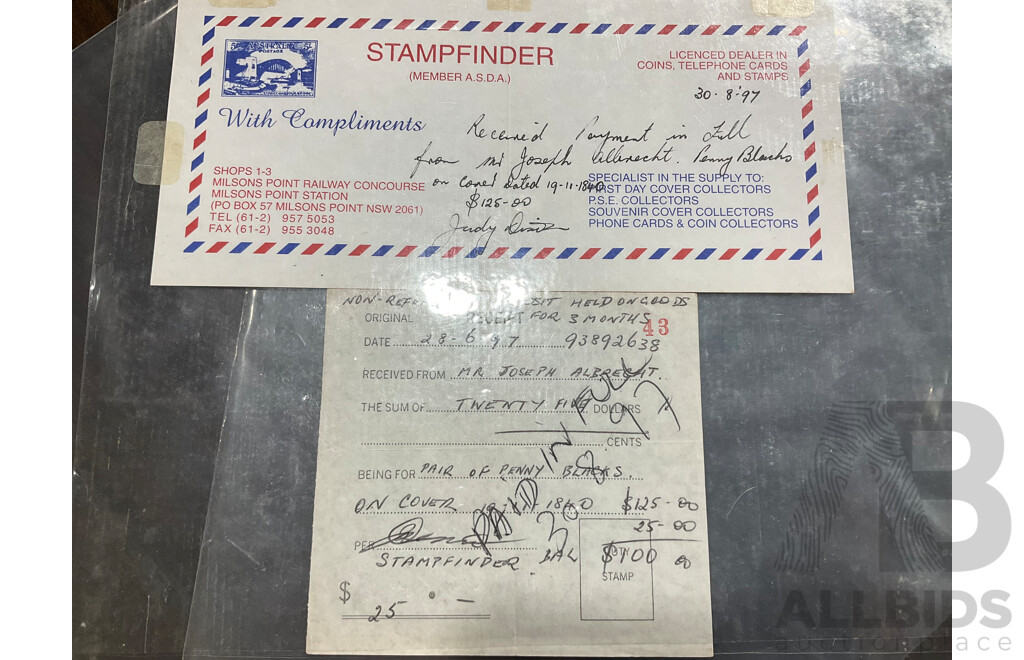 STAMPFINDER
(MEMBER A.S.D.A.)
LICENCED DEALER IN
COINS, TELEPHONE CARDS
AND STAMPS
30·8·97
With Compliments
Received Payment in Full
from Mr Joseph Albrecht. Penny Blacks
on Cover Dated 19-11-1840
$125-00
Judy
SHOPS 1-3
MILSONS POINT RAILWAY CONCOURSE
MILSONS POINT STATION
(PO BOX 57 MILSONS POINT NSW 2061)
TEL (61-2) 957 5053
FAX (61-2) 955 3048
SPECIALIST IN THE SUPPLY TO:
FIRST DAY COVER COLLECTORS
P.S.E. COLLECTORS
SOUVENIR COVER COLLECTORS
PHONE CARDS & COIN COLLECTORS
HELD ON GOODS
ORIGINAL RECEIPT FOR 3 MONTHS
43
DATE 28-6-97 93892638
RECEIVED FROM MR JOSEPH ALBRECHT.
THE SUM OF TWENTY FIVE DOLLARS
CENTS
BEING FOR PAIR OF PENNY BLACKS.
ON COVER 1840 $125-00
25-00
PER
STAMPFINDER. BAL $100 00
DUTY
STAMP
$ 25 · —
PAID IN FULL
30 8 97
AB
ALLBIDS
auction place